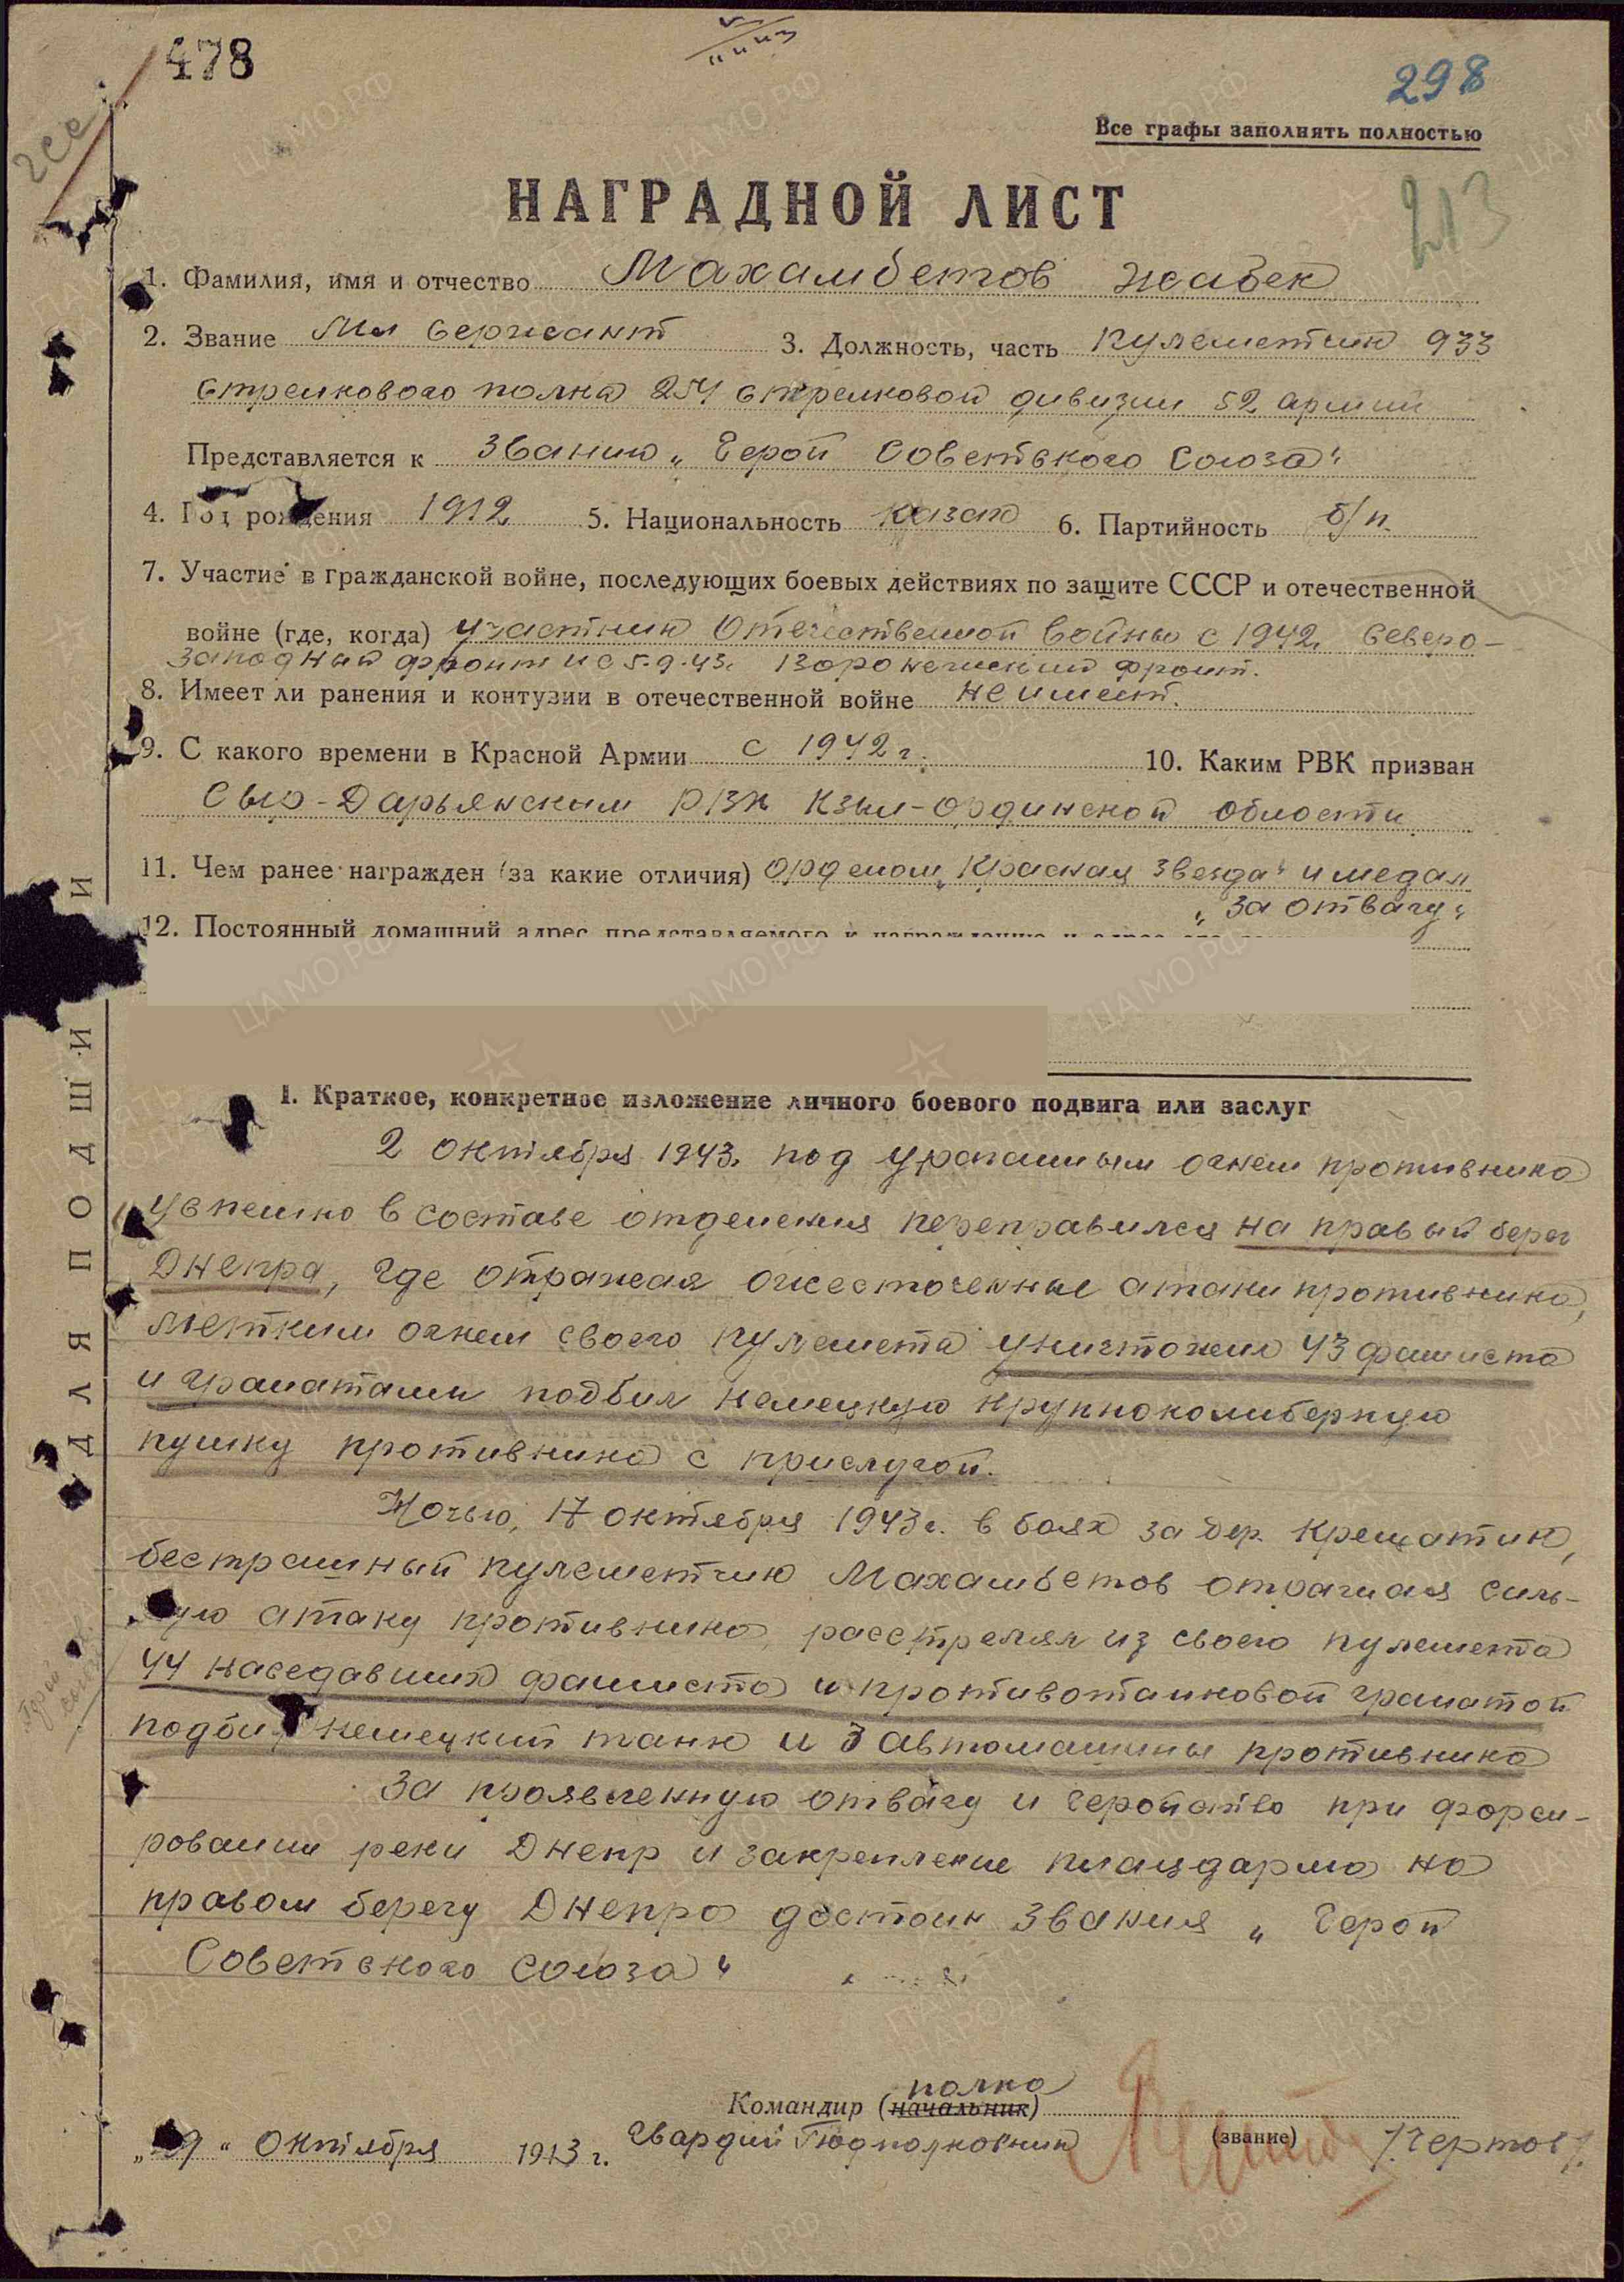 478
298
Все графы заполнять полностью
213
НАГРАДНОЙ ЛИСТ
1. Фамилия, имя и отчество Махамбетов Жабек
2. Звание Мл сержант 3. Должность, часть Пулеметчик 933
стрелкового полка 254 стрелковой дивизии 52 армии
Представляется к званию „Герой Советского Союза"
4. Год рождения 1912 5. Национальность казах 6. Партийность б/п.
7. Участие в гражданской войне, последующих боевых действиях по защите СССР и отечественной
войне (где, когда) участник Отечественной войны с 1942. Северо-
западный фронт и с 5.9.43г. Воронежский фронт.
8. Имеет ли ранения и контузии в отечественной войне не имеет.
9. С какого времени в Красной Армии с 1942 г. 10. Каким РВК призван
Сыр-Дарьянским РВК Кзыл-Ординской области
11. Чем ранее награжден (за какие отличия) орденом „Красная Звезда" и медал
„За отвагу"
12. Постоянный домашний адрес представляемого к награждению и адрес его
1. Краткое, конкретное изложение личного боевого подвига или заслуг
2 октября 1943. под ураганным огнем противника
успешно в составе отделения переправился на правый берег
Днепра, где отражая ожесточенные атаки противника,
метким огнем своего пулемета уничтожил 43 фашиста
и гранатами подбил немецкую крупнокалиберную
пушку противника с прислугой.
Ночью, 17 октября 1943г. в боях за дер. Крещатик,
бестрашный пулеметчик Махамбетов отражая силь-
ную атаку противника, расстрелял из своего пулемета
44 наседавших фашиста и противотанковой гранатой
подбил немецкий танк и 3 автомашины противника
За проявленную отвагу и геройство при форси-
ровании реки Днепр и закрепление плацдарма на
правом берегу Днепра достоин звания „Герой
Советского Союза"
Командир (начальник) полка
(звание)
„29" октября 1943 г. Гвардии Подполковник /Чертов/.
ДЛЯ ПОДШИВКИ
ЦАМО РФ
ПАМЯТЬ НАРОДА